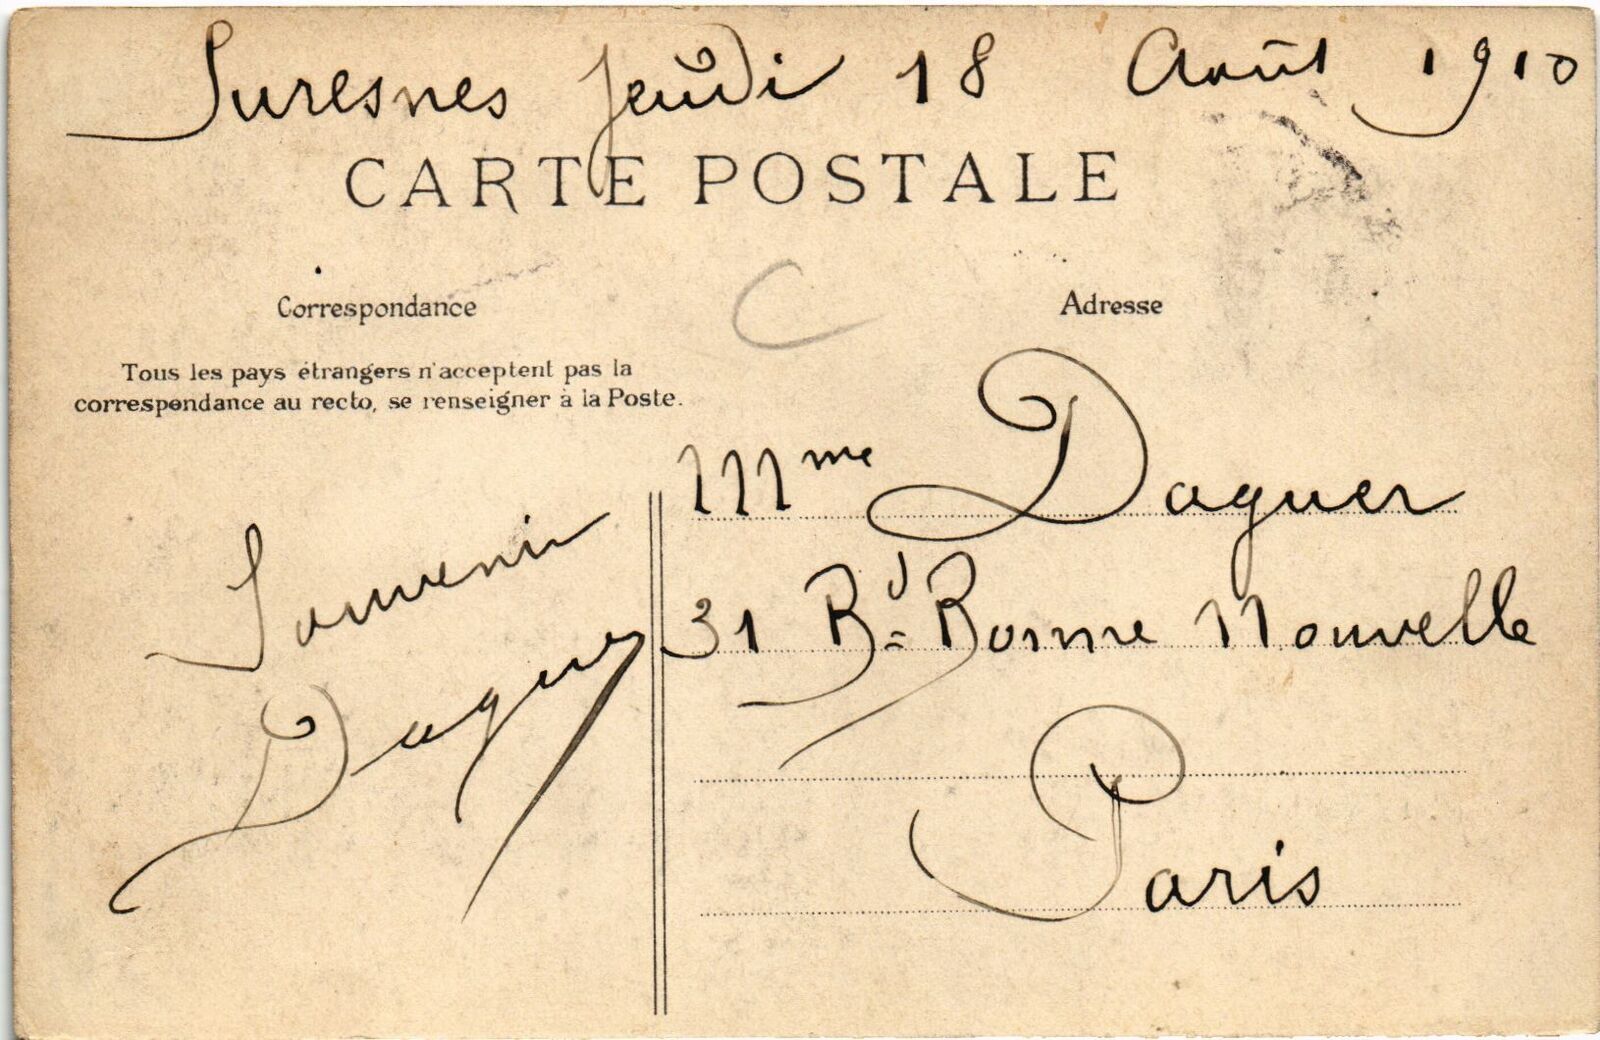 Suresnes Jeudi 18 Août 1910
CARTE POSTALE
Correspondance
Tous les pays étrangers n'acceptent pas la
correspondance au recto, se renseigner à la Poste.
Souvenir
Daguer
C
Adresse
Mme Daguer
31 Bd Bonne Nouvelle
Paris